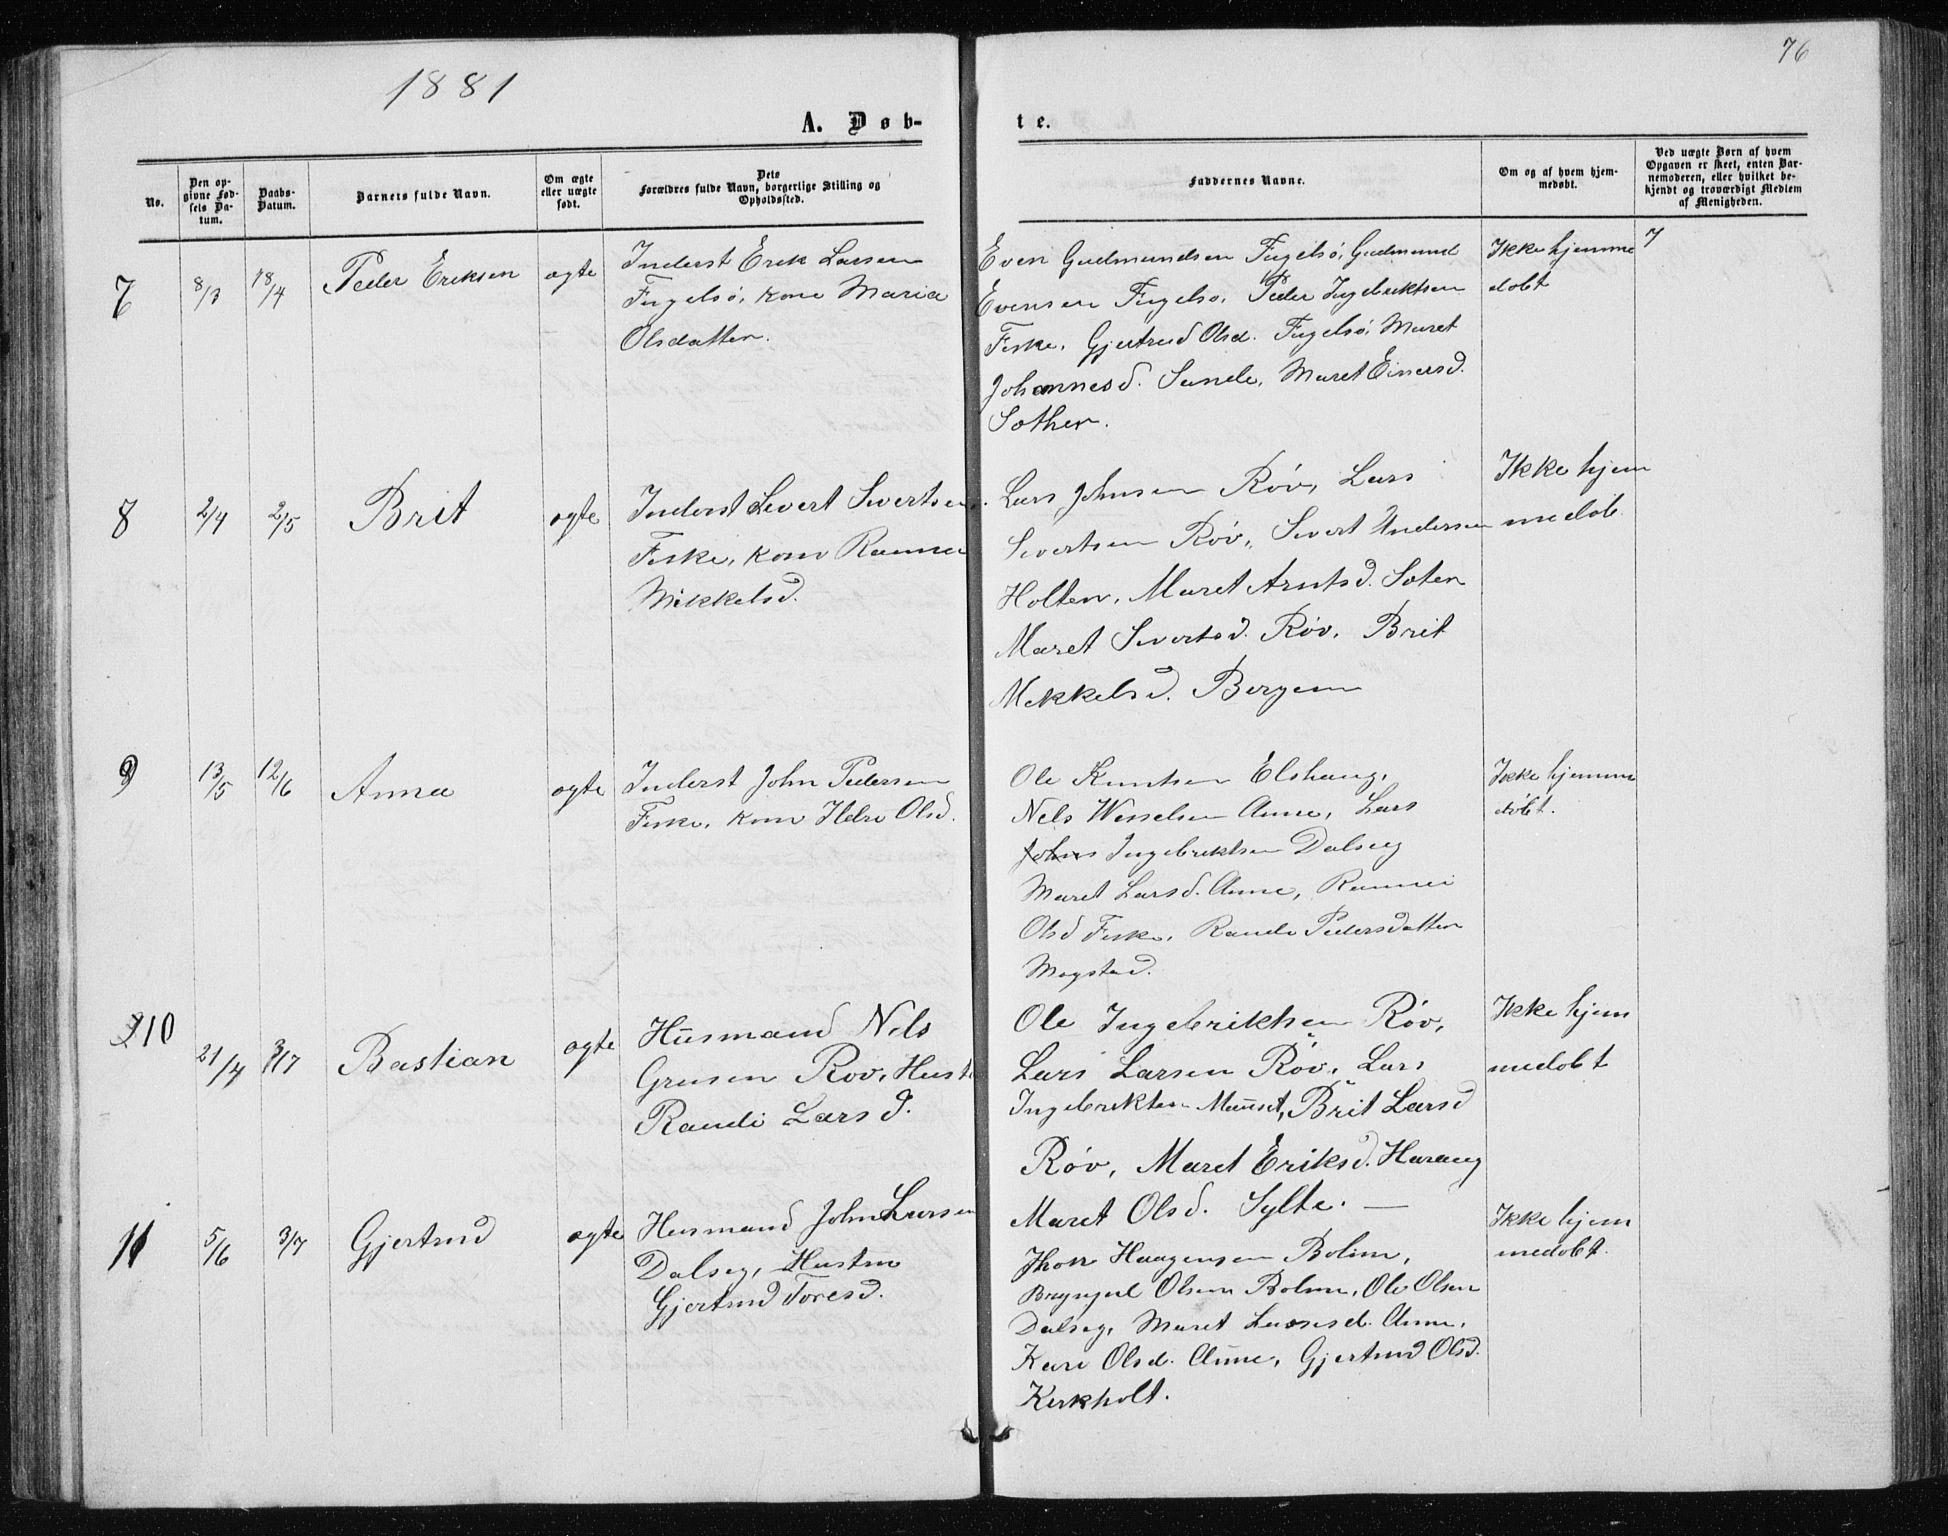 76
1881
A. Døb-
te.
No.
Den op-
givne Fød-
sels Da-
tum.
Daabs-
Datum.
Barnets fulde Navn.
Om ægte
eller uægte
født.
Dets
Forældres fulde Navn, borgerlige Stilling og
Opholdssted.
Faddernes Navne.
Om og af hvem hjem-
medøbt.
Ved uægte Børn af hvem
Opgaven er skeet, enten Bar-
nemoderen, eller hvilket be-
kjendt og troværdigt Medlem
af Menigheden.
7
8/3
18/4
Peder Eriksen
ægte
Inderst Erik Larsen
Fugelsö, kone Maria
Olsdatter.
Even Gudmundsen Fugelsö, Gudmund
Evensen Fugelso, Peder Ingebriktsen
Feske, Gjertrud Olsd. Fugelsö, Maret
Johannesd. Sande, Maret Einersd.
Sother.
Ikke hjemme
dobt
7
8
2/4
2/5
Brit
ægte
Inderst Severt Sivertsen
Feske, kone Rannei
Mikkelsd.
Lars Johnsen Røv, Lars
Sivertsen Røv, Sivert Andersen
Holten, Maret Arntsd. Soten
Maret Sivertsd. Røv, Brit
Mekkelsd. Bergem
Ikke hjem
medøb
9
13/5
12/6
Anna
ægte
Inderst John Pedersen
Feske, kone Helre Olsd.
Ole Knutsen Elshaug,
Nels Wesselsen Aune, Lars
Johns Ingebriktsen Dalseg
Maret Larsd. Aune, Rannei
Olsd Feske, Rande Pedersdatter
Mogstad.
Ikke hjemme
døbt.
10
21/4
3/7
Bastian
ægte
Husmand Nels
Grensen Rov, Hust
Randi Larsd.
Ole Ingebriktsen Røv,
Lars Larsen Røv, Lars
Ingebrikten Mauset, Brit Larsd
Røv, Maret Eriksd. Haraug
Maret Olsd. Sylte. —
Ikke hjem
medobt
11
5/6
3/7
Gjertrud
ægte
Husmand John Larsen
Dalseg, Hustru
Gjertrud Toresd.
Jhon Haagensen Bolme,
Brynjel Olsen Bolme, Ole Olsen
Dalseg, Maret Larsesd. Aune,
Kari Olsd. Aune, Gjertrud Olsd.
Kerkholt.
Ikke hjem
medobt.